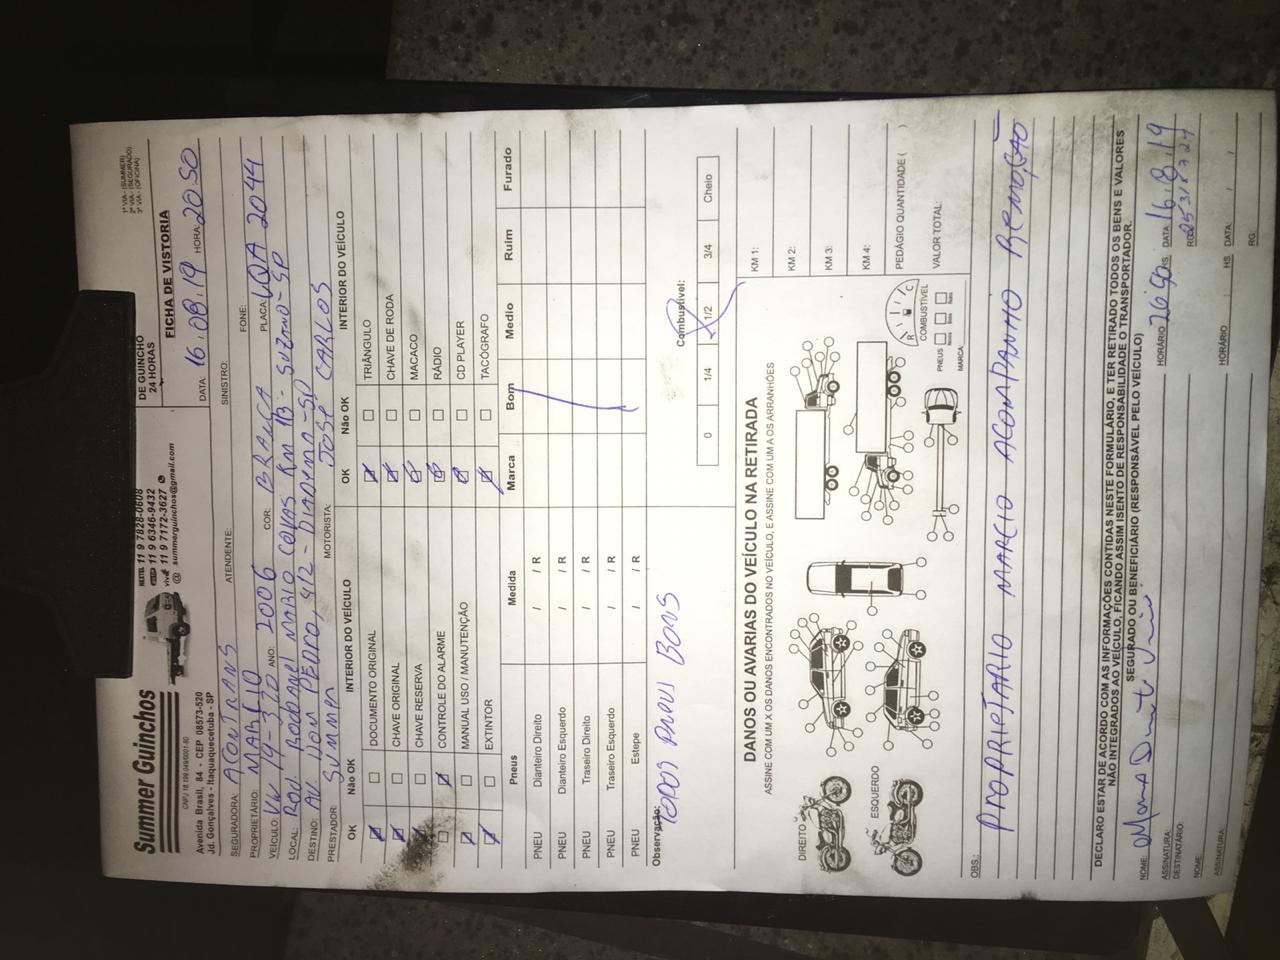 Summer Guinchos
Avenida Brasil, 84 - CEP 08573-520
Jd. Gonçalves - Itaquaquecetuba - SP
11 9 7828-0608
11 9 6346-9432
vivo 11 9 7172-3627
@ summerguinchos@gmail.com
DE GUINCHO
24 HORAS
1ª VIA - (SUMMER)
2ª VIA - (SEGURADO)
3ª VIA - (OFICINA)
FICHA DE VISTORIA
DATA: 16.08.19 HORA: 20:50
SEGURADORA: ATENDENTE: SINISTRO:
PROPRIETÁRIO: MARCIO FONE:
VEÍCULO: VW 19-320 ANO: 2006 COR: BRANCA PLACA: 2044
LOCAL: ROD. RODOANEL MARIO COVAS KM 113 - SUZANO-SP
DESTINO: AV DOM PEDRO, 912 - DIADEMA-SP
PRESTADOR: SUMMER MOTORISTA: JOSE CARLOS
OK Não OK INTERIOR DO VEÍCULO OK Não OK INTERIOR DO VEÍCULO
DOCUMENTO ORIGINAL TRIÂNGULO
CHAVE ORIGINAL CHAVE DE RODA
CHAVE RESERVA MACACO
CONTROLE DO ALARME RÁDIO
MANUAL USO / MANUTENÇÃO CD PLAYER
EXTINTOR TACÓGRAFO
Pneus Medida Marca Bom Medio Ruim Furado
PNEU Dianteiro Direito / / R
PNEU Dianteiro Esquerdo / / R
PNEU Traseiro Direito / / R
PNEU Traseiro Esquerdo / / R
PNEU Estepe / / R
Observação: TODOS PNEUS BONS
Combustível:
0 1/4 1/2 3/4 Cheio
DANOS OU AVARIAS DO VEÍCULO NA RETIRADA
ASSINE COM UM X OS DANOS ENCONTRADOS NO VEÍCULO, E ASSINE COM UM A OS ARRANHÕES
DIREITO
ESQUERDO
R C
COMBUSTÍVEL
PNEUS
MARCA:
KM 1:
KM 2:
KM 3:
KM 4:
PEDÁGIO QUANTIDADE (
VALOR TOTAL:
OBS.:
PROPRIETARIO MARCIO ACOMPANHO REMOÇÃO
DECLARO ESTAR DE ACORDO COM AS INFORMAÇÕES CONTIDAS NESTE FORMULÁRIO, E TER RETIRADO TODOS OS BENS E VALORES
NÃO INTEGRADOS AO VEÍCULO, FICANDO ASSIM ISENTO DE RESPONSABILIDADE O TRANSPORTADOR.
SEGURADO OU BENEFICIÁRIO (RESPONSÁVEL PELO VEÍCULO)
NOME:
ASSINATURA: HORÁRIO HS. DATA: 16.8.19
DESTINATÁRIO: RG:
NOME:
ASSINATURA: HORÁRIO HS. DATA: / /
RG.